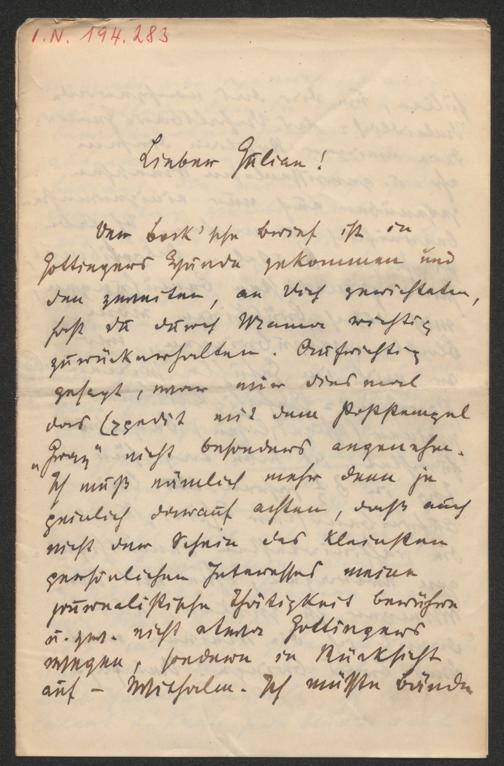 I.N. 194.283
Lieber Julian!
Der Bock'sche Brief ist in
Gottingers Hände gekommen und
den zweiten, an Dich gerichteten,
hast du durch Mama richtig
zurückerhalten. Aufrichtig
gesagt, war mir diesmal
das Expedit mit dem Poststempel
„Graz" nicht besonders angenehm.
Ich muß nämlich mehr denn je
peinlich darauf achten, daß auch
nicht der Schein des kleinsten
persönlichen Interesses meine
journalistische Thätigkeit berühre
u. zw. nicht etwa Gottingers
wegen, sondern in Rücksicht
auf – Wilhelm. Ich müßte Bände